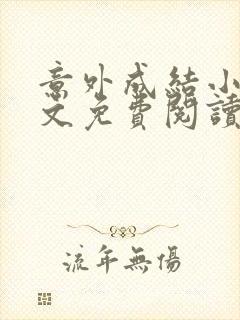 意外成結小
文免費閱讀
流年無傷